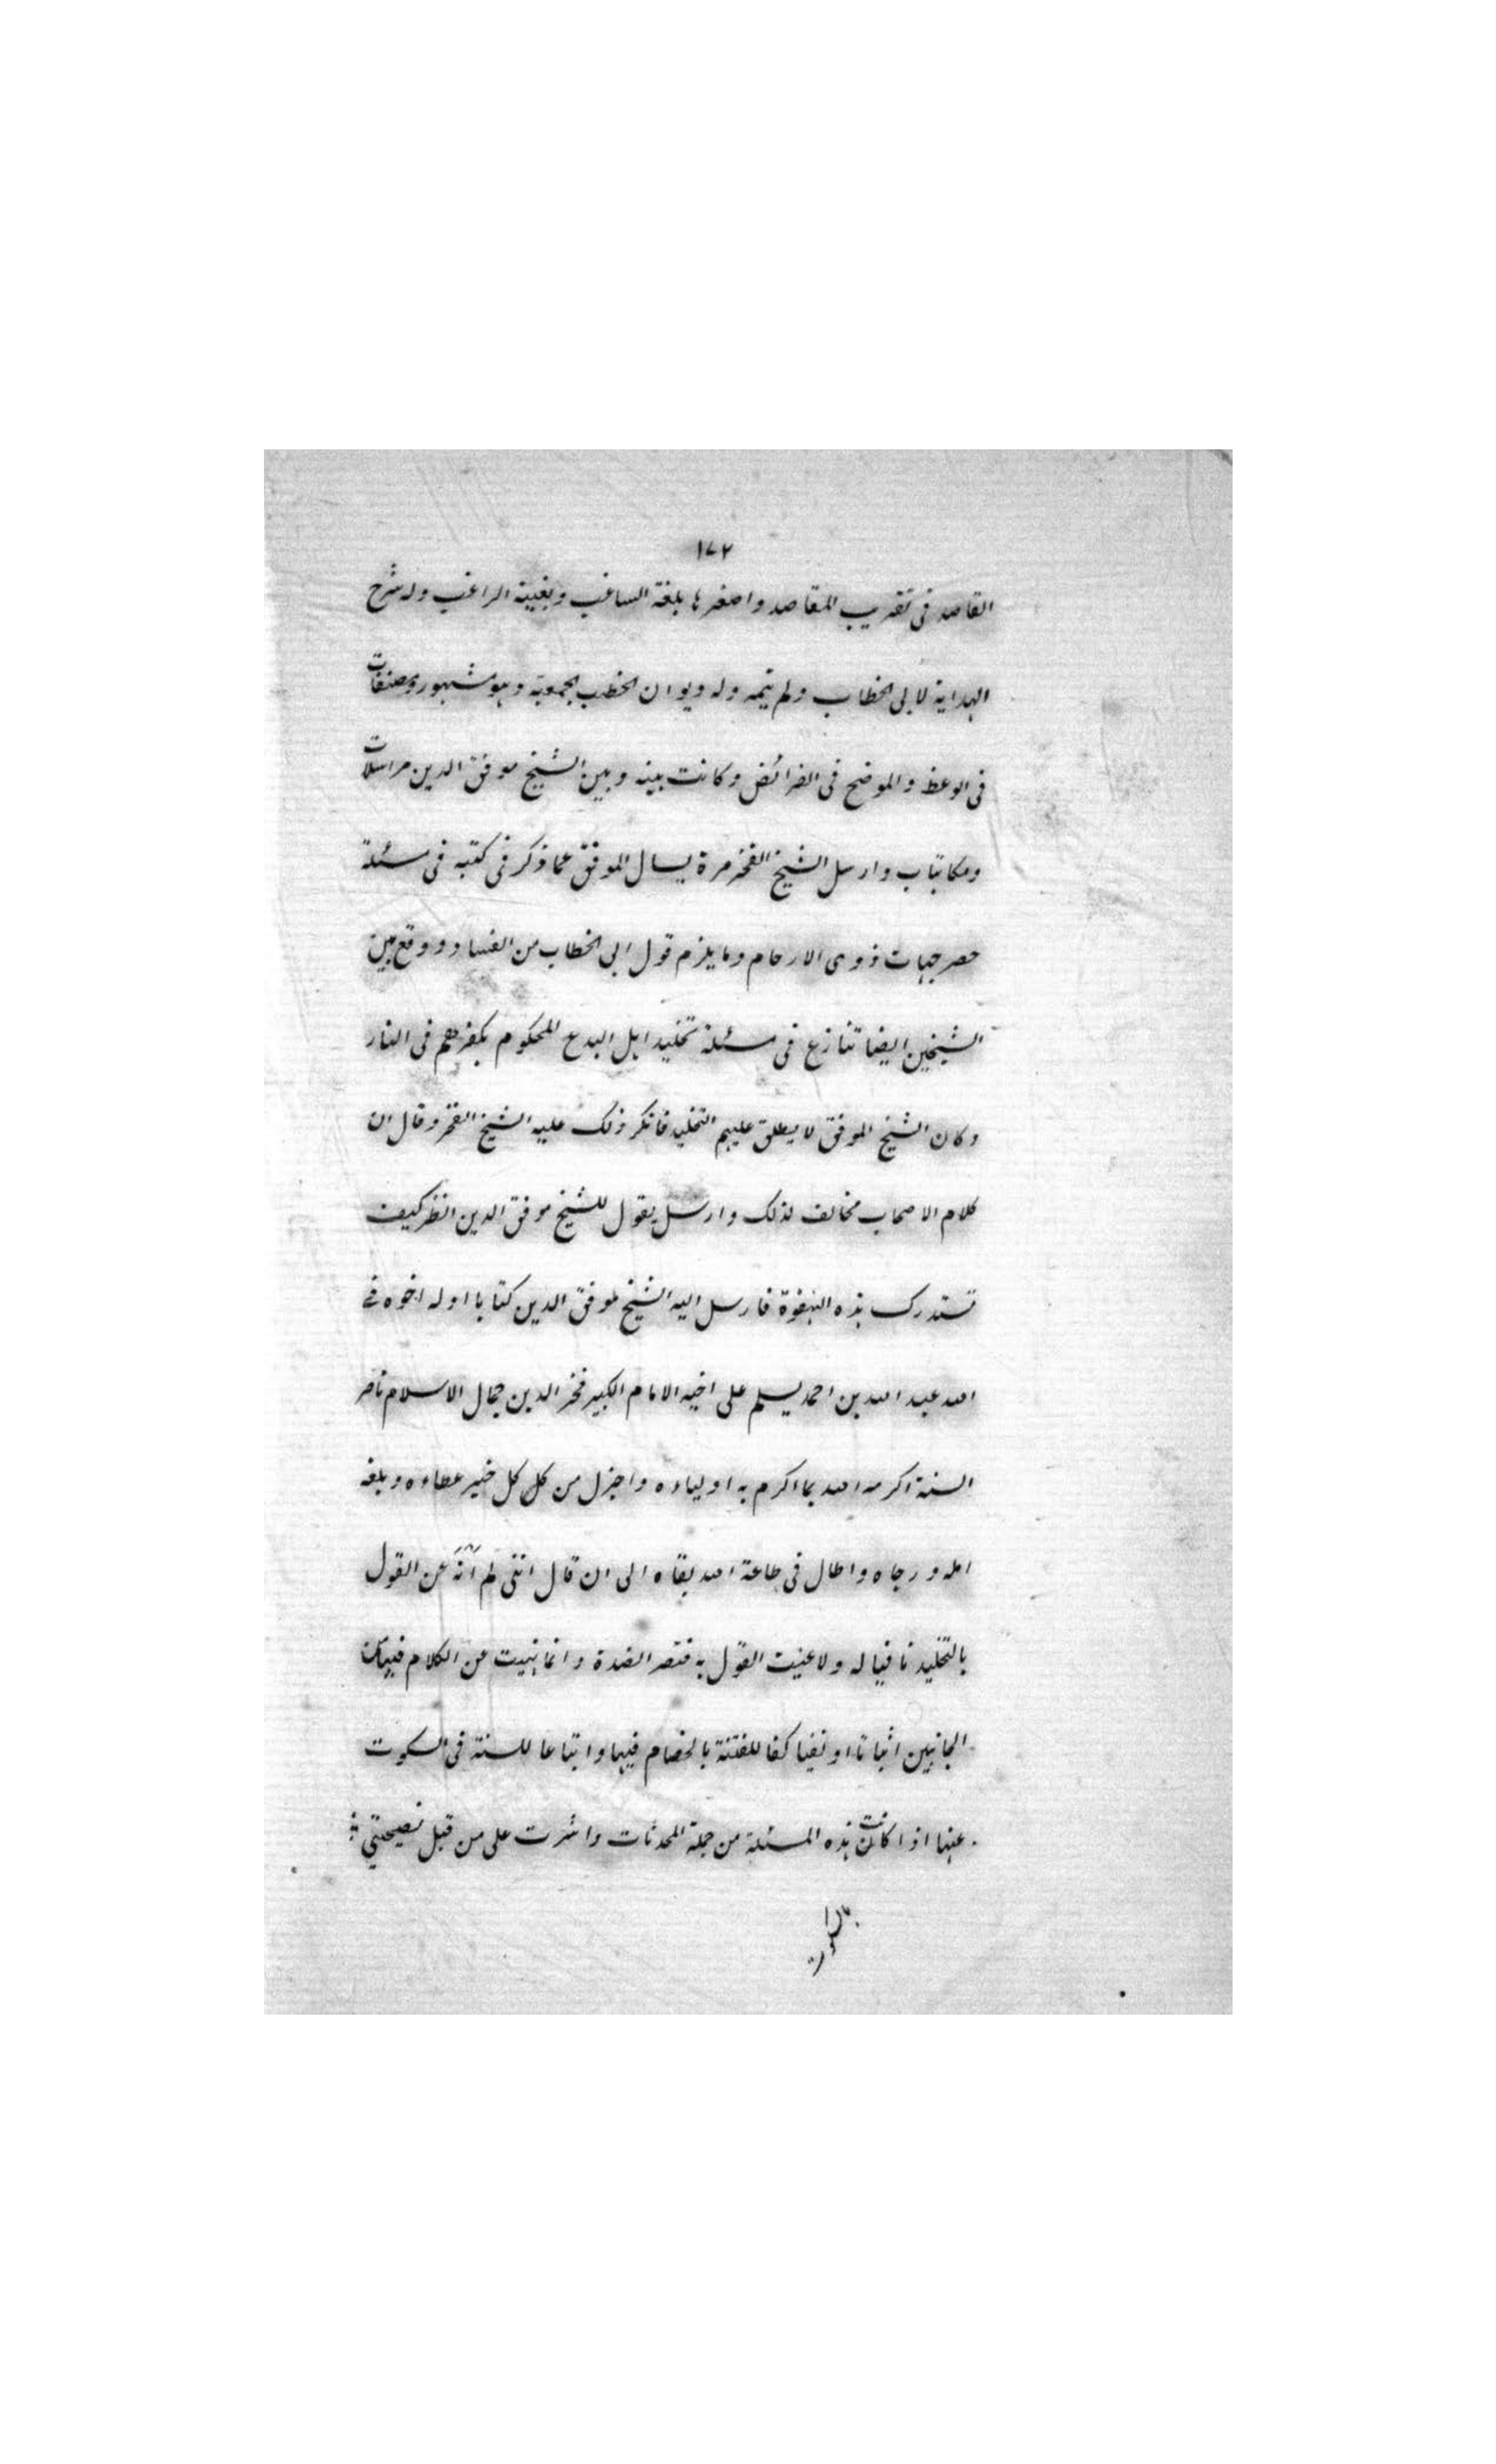 ١٧٢
القاصد فى تقريب المقاصد واصغرها بلغة الساغب وبغيية الراغب وله شرح
الهداية لابى الخطاب ولم يتمه وله ديوان الخطب الجمعية وهو مشهور ومصنفات
فى الوعظ والموضح فى الفرائض وكانت بينه وبين الشيخ موفق الدين مراسلات
ومكاتبات وارسل الشيخ الفخر مرة يسال الموفق عما ذكر فى كتبه فى مسئلة
حصر جهات ذوى الارحام وما يلزم قول ابى الخطاب من الفساد ووقع بين
الشيخين ايضا تنازع فى مسئلة تخليد اهل البدع المحكوم بكفرهم فى النار
وكان الشيخ الموفق لا يطلق عليهم التخليد فانكر ذلك عليه الشيخ الفخر وقال ان
كلام الاصحاب مخالف لذلك وارسل يقول للشيخ موفق الدين انظر كيف
تستدرك هذه الهفوة فارسل اليه الشيخ موفق الدين كتابا اوله اخوه فى
الله عبد الله بن احمد يسلم على اخيه الامام الكبير فخر الدين جمال الاسلام ناصر
السنة اكرمه الله بما اكرم به اولياءه واجزل من كل كل خير عطاءه وبلغه
امله ورجاه واطال فى طاعة الله بقاه الى ان قال اننى لم اَنْهَ عن القول
بالتخليد نافيا له ولا عنيت القول به فتصر الضدة وانما نهيت عن الكلام فيها من
الجانبين اثباتا او نفيا كفا للفتنة بالخصام فيها واتباعا للسنة فى السكوت
عنها اذا كانت هذه المسئلة من جملة المحدثات واشرت على من قبل نصيحتى
بالسكوت